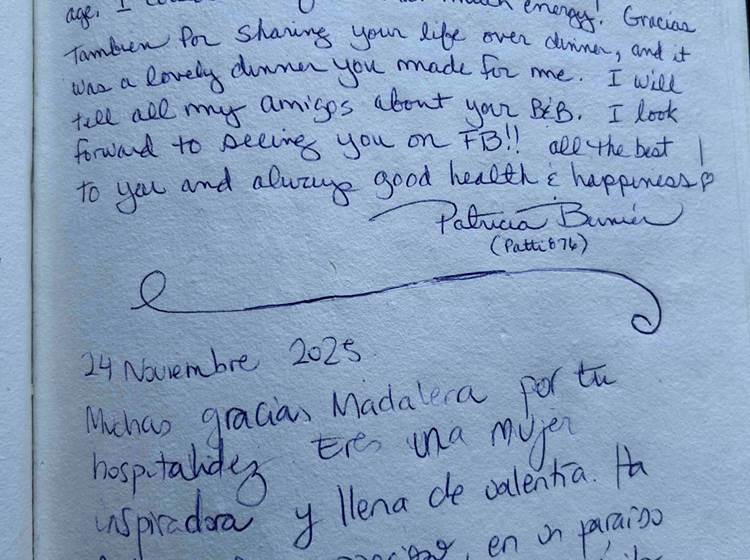 age. I much energy! Gracias
Tambien for sharing your life over dinner, and it
was a lovely dinner you made for me. I will
tell all my amigos about your B&B. I look
forward to seeing you on FB!! all the best
to you and always good health & happiness♡
Patricia Bernier
(Patti876)
24 Noviembre 2025
Muchas gracias Madalera por tu
hospitalidez Eres una mujer
inspiradora y llena de valentía. Ha
en un paraiso